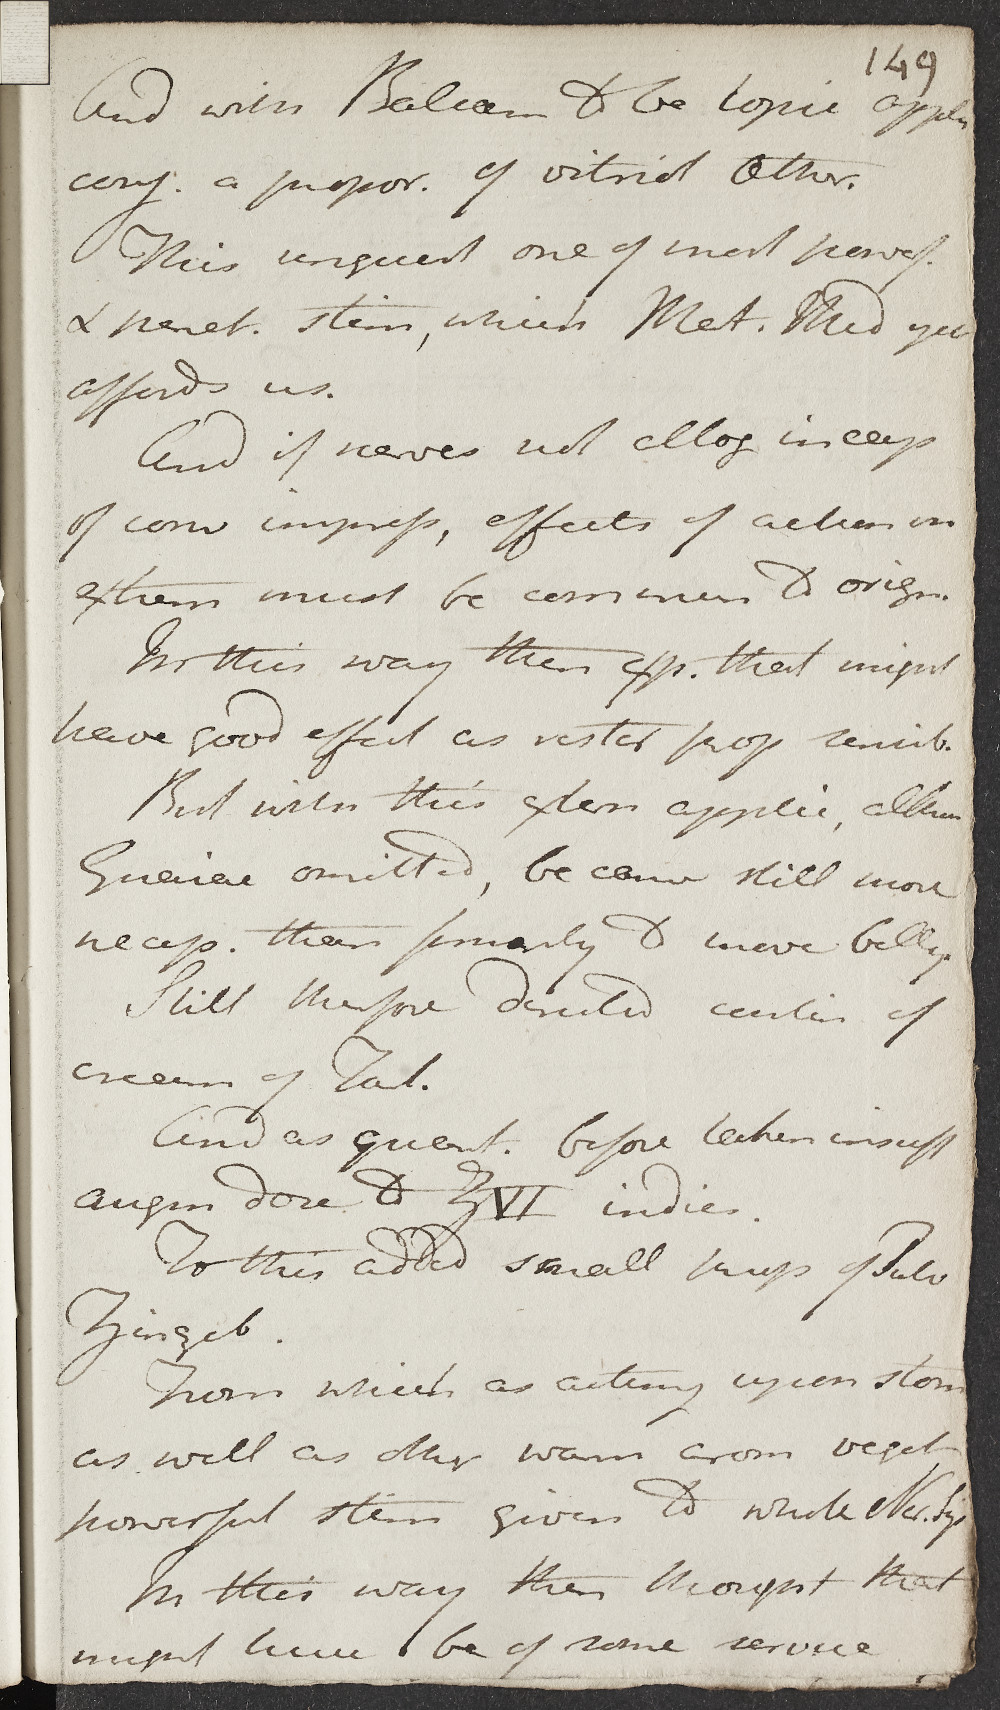 149
And with Balsam to be topic applic
conj. a propor. of vitriol Æther.
This unguent one of most powef.
& penet. stim, which Mat. Med yet
affords us.
And if nerves not altog incap
of conv impress, effects of action on
extrem must be commun to origin.
In this way then exp. that might
have good effect as restor prop sensib.
But with this extern applic, altho
Guaiac omitted, be came still more
necess. than formerly to move belly.
Still therfore directed contin of
cream of Tart.
And as quant. before taken insuff
augm dose to ℨVI indies.
To this added small prop of Pulv
Zingeb.
From which as acting upon stom
as well as other warm arom veget
powerful stim given to whole Ner. Sys
In this way then thought that
might have be of some service